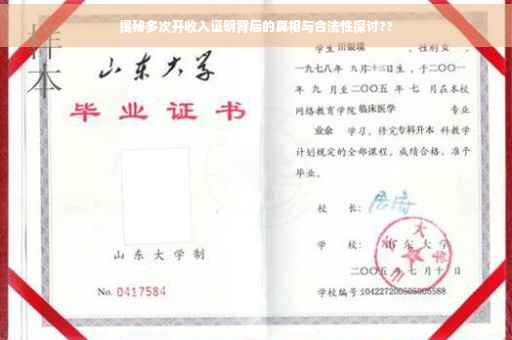 揭秘多次开收入证明背后的真相与合法性探讨??
样本
山东大学
毕业证书
山东大学制
No. 0417584
学生 田银瑞 ，性别 女 ，
一九七八年 九月十三日生，于二〇〇一
年 九 月至二〇〇五 年 七 月在本校
网络教育学院 临床医学 专业
业余 学习，修完 专科升本 科教学
计划规定的全部课程，成绩合格，准予
毕业。
校 长：
学 校： 山东大学
二〇〇五 年 七 月 十 日
学校编号：